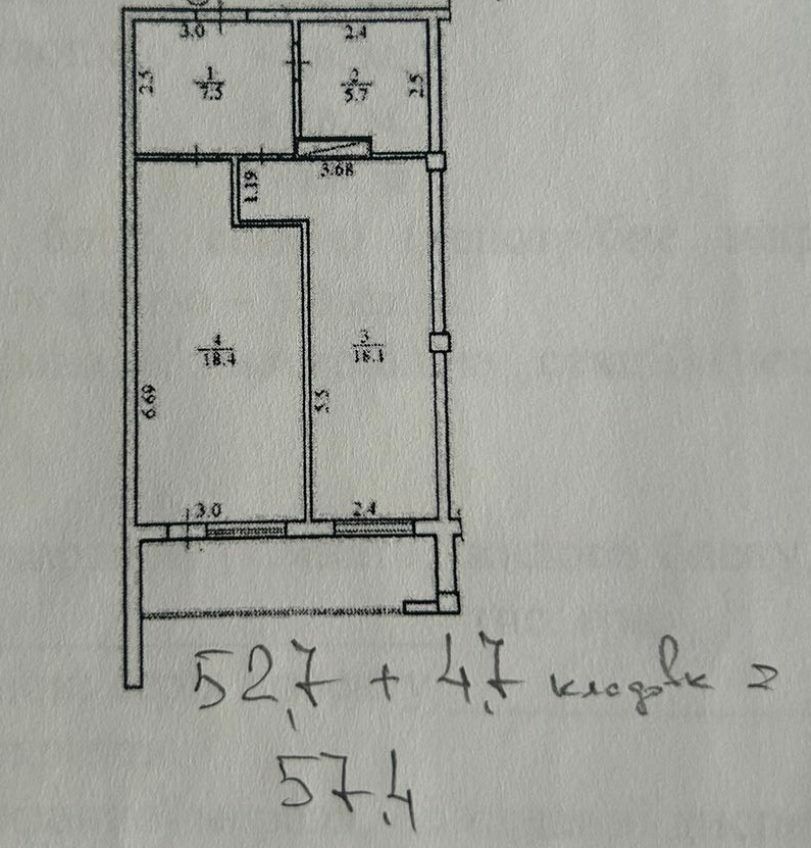 3.0
2.4
2.5
1
7.5
2
5.7
2.5
3.68
1.19
4
18.4
3
18.1
6.69
5.5
3.0
2.4
52,7 + 4,7 кладовк =
57,4